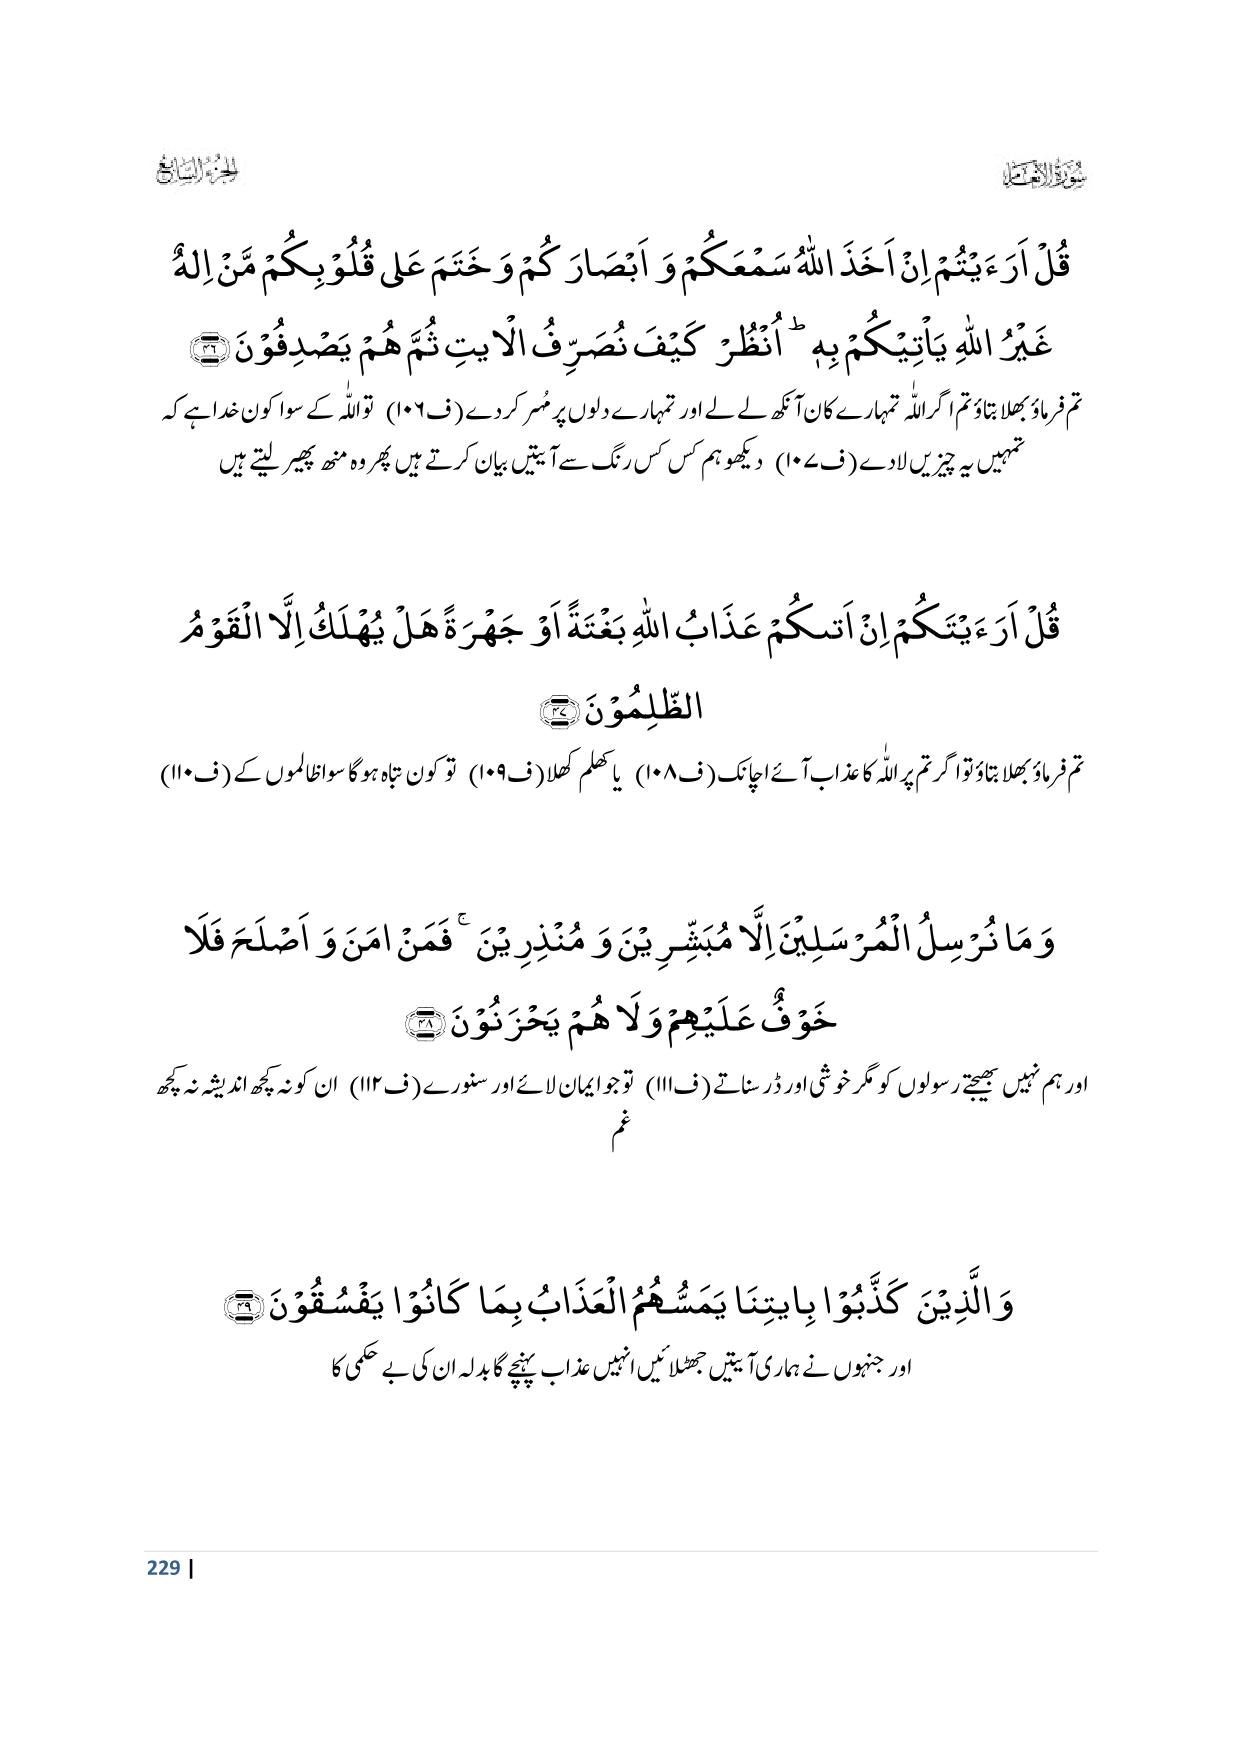 سُوْرَةُ الْاَنْعَامِ
الجُزءُ السَّابِعُ
قُلْ اَرَءَيْتُمْ اِنْ اَخَذَ اللّٰهُ سَمْعَكُمْ وَ اَبْصَارَكُمْ وَ خَتَمَ عَلٰى قُلُوْبِكُمْ مَّنْ اِلٰهٌ
غَيْرُ اللّٰهِ يَاْتِيْكُمْ بِهٖ ؕ اُنْظُرْ كَيْفَ نُصَرِّفُ الْاٰيٰتِ ثُمَّ هُمْ يَصْدِفُوْنَ ﴿۴۶﴾
تم فرماؤ بھلا بتاؤ تم اگر اللّٰہ تمہارے کان آنکھ لے لے اور تمہارے دلوں پر مُہر کردے (ف۱۰۶) تو اللّٰہ کے سوا کون خدا ہے کہ
تمہیں یہ چیزیں لادے (ف۱۰۷) دیکھو ہم کس کس رنگ سے آیتیں بیان کرتے ہیں پھر وہ منھ پھیر لیتے ہیں
قُلْ اَرَءَيْتَكُمْ اِنْ اَتٰىكُمْ عَذَابُ اللّٰهِ بَغْتَةً اَوْ جَهْرَةً هَلْ يُهْلَكُ اِلَّا الْقَوْمُ
الظّٰلِمُوْنَ ﴿۴۷﴾
تم فرماؤ بھلا بتاؤ تو اگر تم پر اللّٰہ کا عذاب آئے اچانک (ف۱۰۸) یا کھلم کھلا (ف۱۰۹) تو کون تباہ ہوگا سوا ظالموں کے (ف۱۱۰)
وَ مَا نُرْسِلُ الْمُرْسَلِيْنَ اِلَّا مُبَشِّرِيْنَ وَ مُنْذِرِيْنَ ۚ فَمَنْ اٰمَنَ وَ اَصْلَحَ فَلَا
خَوْفٌ عَلَيْهِمْ وَلَا هُمْ يَحْزَنُوْنَ ﴿۴۸﴾
اور ہم نہیں بھیجتے رسولوں کو مگر خوشی اور ڈر سناتے (ف۱۱۱) تو جو ایمان لائے اور سنورے (ف۱۱۲) ان کو نہ کچھ اندیشہ نہ کچھ
غم
وَ الَّذِيْنَ كَذَّبُوْا بِاٰيٰتِنَا يَمَسُّهُمُ الْعَذَابُ بِمَا كَانُوْا يَفْسُقُوْنَ ﴿۴۹﴾
اور جنہوں نے ہماری آیتیں جھٹلائیں انہیں عذاب پہنچے گا بدلہ ان کی بے حکمی کا
229 |